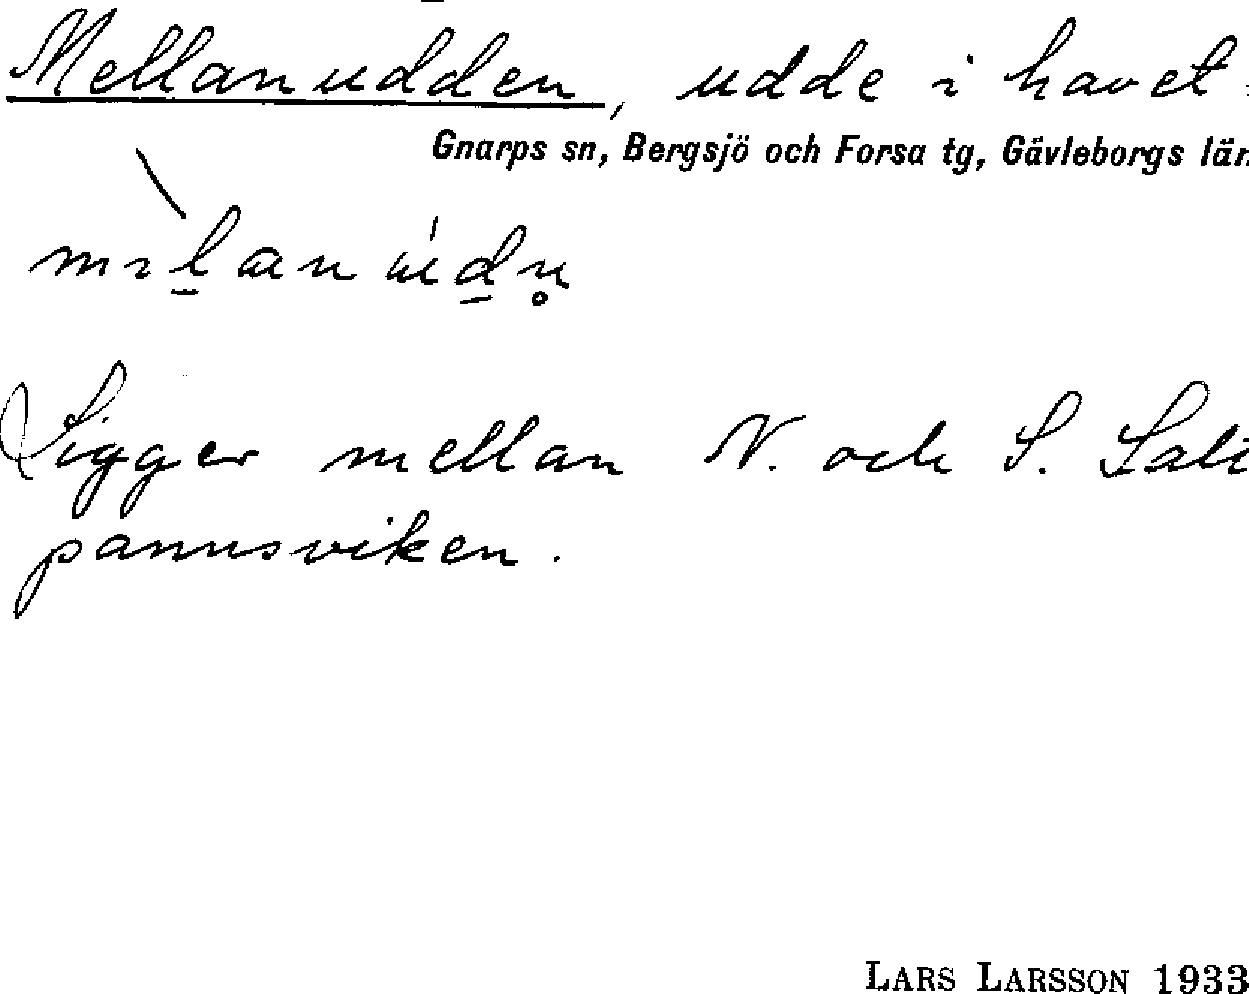 Mellanudden, udde i havet.
Gnarps sn, Bergsjö och Forsa tg, Gävleborgs län
Ligger mellan N. och S. Salt
pannsviken.
LARS LARSSON 1933